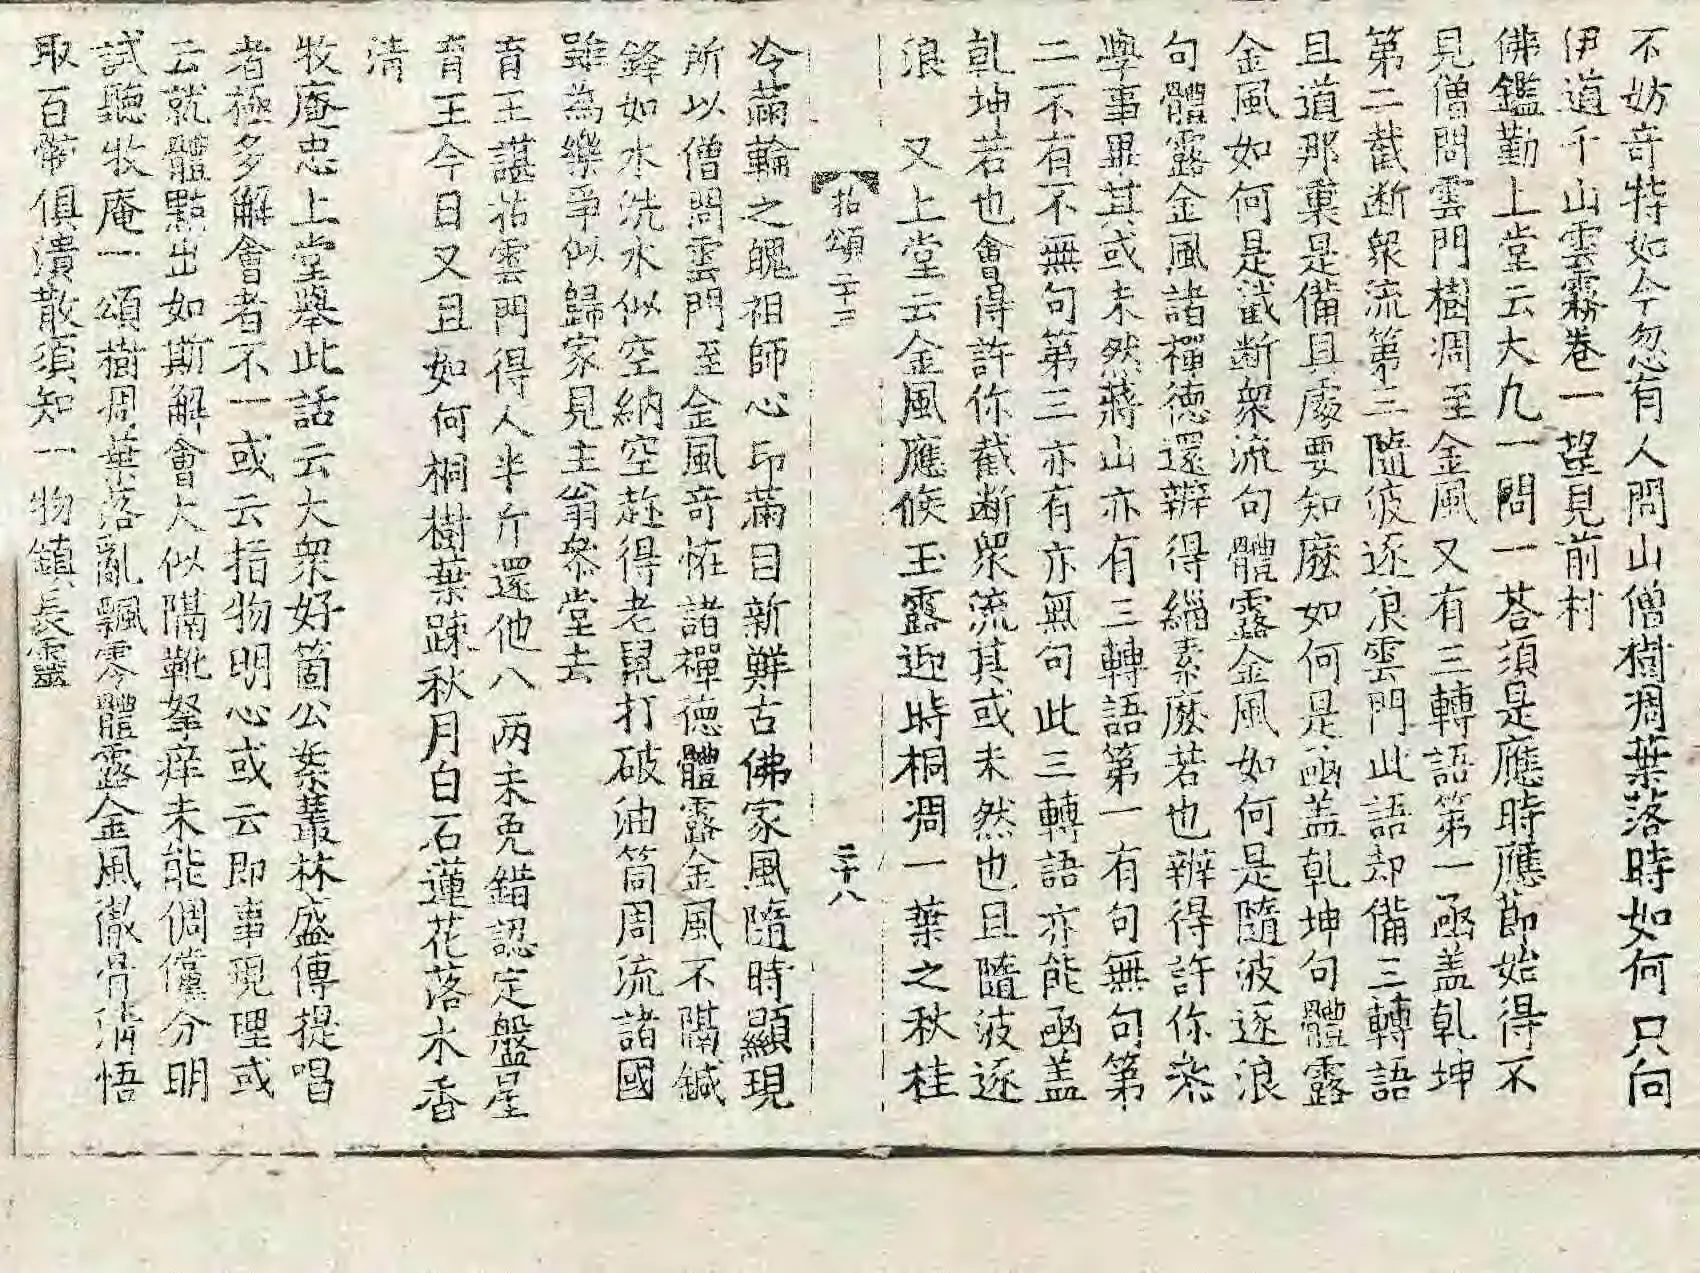 不妨竒特如今忽有人問山僧樹凋葉落時如何只向
伊道千山雲霧卷一望見前村
佛鑑勤上堂云大凡一問一荅須是應時應節始得不
見僧問雲門樹凋至金風又有三轉語第一凾盖乹坤
第二截断衆流第三隨波逐浪雲門此語却備三轉語
且道那裏是備且處要知麽如何是凾盖乹坤句體露
金風如何是截断衆流句體露金風如何是隨波逐浪
句體露金風諸禪德還辨得緇素麽若也辨得許你叅
學事畢其或未然蔣山亦有三轉語第一有句無句第
二不有不無句第三亦有亦無句此三轉語亦能凾盖
乹坤若也會得許你截断衆流其或未然也且隨波逐
浪 又上堂云金風應候玉露迎時桐凋一葉之秋桂
拈頌二十三 二十八
冷蒲輪之魄祖師心印滿目新鮮古佛家風隨時顯現
所以僧問雲門至金風竒恠諸禪德體露金風不隔鍼
鋒如水洗水似空納空趂得老鼠打破油筒周流諸國
雖為樂爭似歸家見主翁叅堂去
育王諶拈雲門得人半斤還他八两未免錯認定盤星
育王今日又且如何桐樹葉踈秋月白石蓮花落水香
清
牧庵忠上堂擧此話云大衆好箇公案叢林盛傳提唱
者極多解會者不一或云指物明心或云即事現理或
云就體點出如斯解會大似隔靴拏痒未能倜儻分明
試聽牧庵一頌樹凋葉落亂飄零體露金風徹骨清悟
取百骸俱潰散須知一物鎮長靈